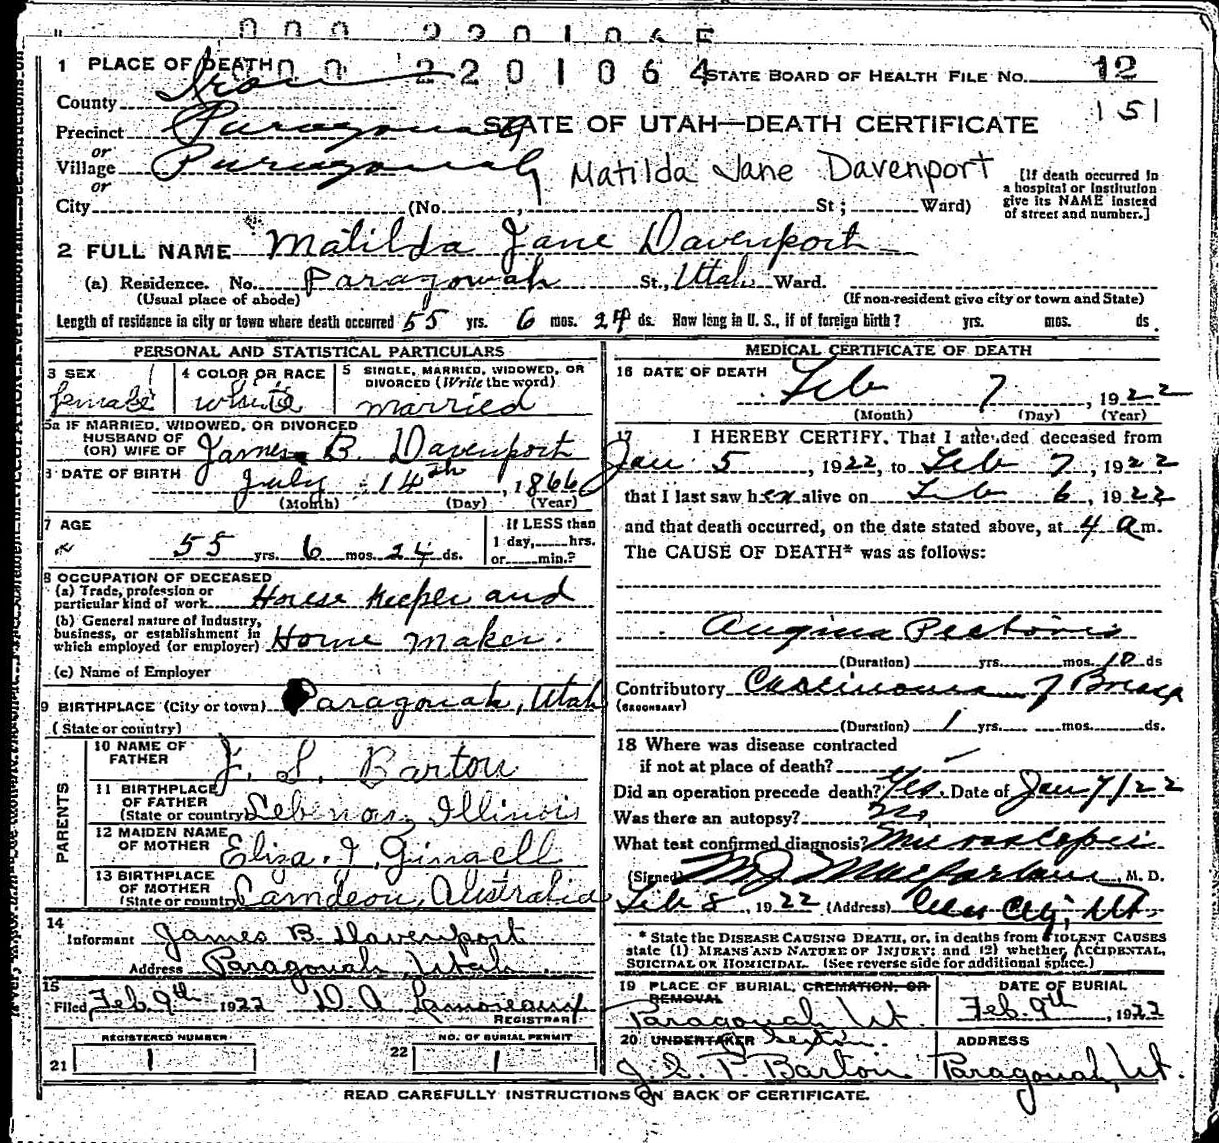 000 2201065
000 2201064
1 PLACE OF DEATH STATE BOARD OF HEALTH FILE No. 12
County Iron 151
Precinct Paragonah STATE OF UTAH—DEATH CERTIFICATE
or
Village Paragonah Matilda Jane Davenport
or
[If death occurred in a hospital or institution give its NAME instead of street and number.]
City (No. , St; Ward)
2 FULL NAME Matilda Jane Davenport
(a) Residence. No. Paragowah St., Utah Ward.
(Usual place of abode) (If non-resident give city or town and State)
Length of residence in city or town where death occurred 55 yrs. 6 mos. 24 ds. How long in U. S., if of foreign birth? yrs. mos. ds.
PERSONAL AND STATISTICAL PARTICULARS
3 SEX 4 COLOR OR RACE 5 SINGLE, MARRIED, WIDOWED, OR
DIVORCED (Write the word)
female white married
5a IF MARRIED, WIDOWED, OR DIVORCED
HUSBAND OF
(OR) WIFE OF James B. Davenport
6 DATE OF BIRTH July 14th, 1866
(Month) (Day) (Year)
7 AGE If LESS than
55 yrs. 6 mos. 24 ds. 1 day, hrs.
or min.?
8 OCCUPATION OF DECEASED
(a) Trade, profession or
particular kind of work House Keeper and
(b) General nature of industry,
business, or establishment in
which employed (or employer) Home maker.
(c) Name of Employer
9 BIRTHPLACE (City or town) Paragonah, Utah
(State or country)
PARENTS
10 NAME OF
FATHER J. S. Barton
11 BIRTHPLACE
OF FATHER
(State or country) Lebenon, Illinois
12 MAIDEN NAME
OF MOTHER Eliza I,
13 BIRTHPLACE
OF MOTHER
(State or country) Camdeon, Australia
14
Informant James B. Davenport
Address Paragonah, Utah.
15
Filed Feb. 9th 1922 D A Lamoreaux
REGISTRAR
REGISTERED NUMBER NO. OF BURIAL PERMIT
21 1 22 1
MEDICAL CERTIFICATE OF DEATH
16 DATE OF DEATH Feb 7, 1922
(Month) (Day) (Year)
17 I HEREBY CERTIFY, That I attended deceased from
Jan 5, 1922, to Feb 7, 1922
that I last saw her alive on Feb 6, 1922
and that death occurred, on the date stated above, at 4 a m.
The CAUSE OF DEATH* was as follows:
Angina Pectoris
(Duration) yrs. mos. 10 ds
Contributory Carcinoma of Breast
(SECONDARY)
(Duration) 1 yrs. mos. ds.
18 Where was disease contracted
if not at place of death?
Did an operation precede death? Yes. Date of Jan 7/22
Was there an autopsy? No
What test confirmed diagnosis? Microscopic
(Signed) M J Macfarlane, M. D.
Feb 8, 1922 (Address) Cedar City, Ut.
* State the DISEASE CAUSING DEATH, or, in deaths from VIOLENT CAUSES
state (1) MEANS AND NATURE OF INJURY; and (2) whether ACCIDENTAL,
SUICIDAL OR HOMICIDAL. (See reverse side for additional space.)
19 PLACE OF BURIAL, CREMATION, OR DATE OF BURIAL
REMOVAL
Paragonah Ut. Feb. 9th, 1922
20 UNDERTAKER Sexton. ADDRESS
J. S. P. Barton Paragonah, Ut.
READ CAREFULLY INSTRUCTIONS ON BACK OF CERTIFICATE.